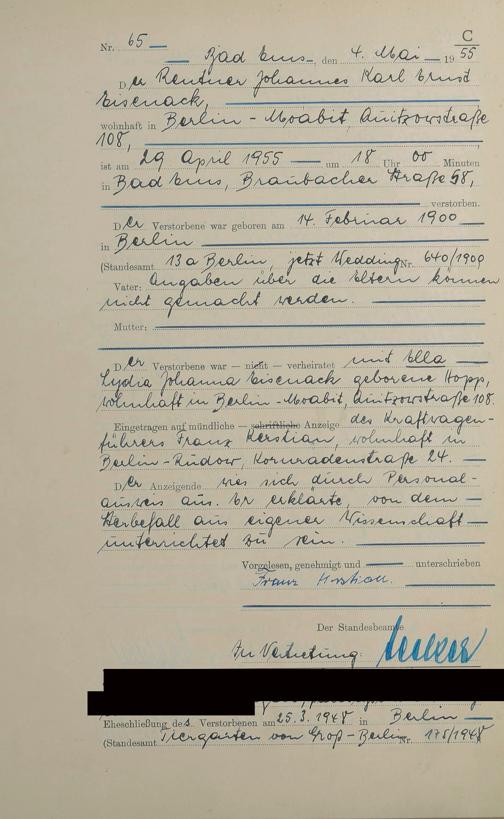 C
Nr. 65
Bad Ems, den 4. Mai 1955
Der Rentner Johannes Karl Ernst
Eisenack,
wohnhaft in Berlin - Moabit, Quitzowstraße
108,
ist am 29 April 1955 um 18 Uhr 00 Minuten
in Bad Ems, Braubacher Straße 58,
verstorben.
Der Verstorbene war geboren am 14. Februar 1900
in Berlin
(Standesamt 13a Berlin, jetzt Wedding Nr. 640/1900
Vater: Angaben über die Eltern können
nicht gemacht werden.
Mutter:
Der Verstorbene war — nicht — verheiratet mit Ella
Lydia Johanna Eisenack geborene Hopp,
wohnhaft in Berlin-Moabit, Quitzowstraße 108.
Eingetragen auf mündliche — schriftliche Anzeige des Kraftwagen-
führers Franz Kerstian, wohnhaft in
Berlin-Rudow, Kornradenstraße 24.
Der Anzeigende wies sich durch Personal-
ausweis aus. Er erklärte, von dem
Sterbefall aus eigener Wissenschaft
unterrichtet zu sein.
Vorgelesen, genehmigt und unterschrieben
Franz Kerstian.
Der Standesbeamte
In Vertretung:
Eheschließung des Verstorbenen am 25.3.1948 in Berlin
(Standesamt Tiergarten von Groß-Berlin Nr. 178/1948